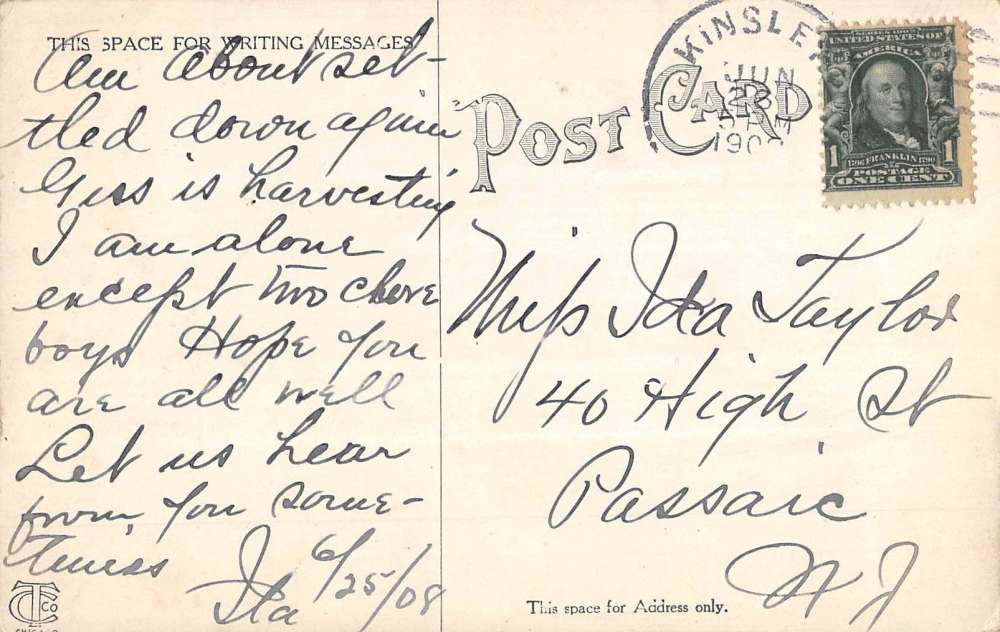 THIS SPACE FOR WRITING MESSAGES
Am about set-
tled down again
Guss is harvesting
I am alone
except two chore
boys Hope you
are all well
Let us hear
from you some-
times
Ida 6/25/08
CTCo
CHICAGO
POST CARD
KINSLEY
JUN
5 AM
190
SERIES 1902
UNITED STATES OF
AMERICA
1706 FRANKLIN 1790
1 1
POSTAGE
ONE CENT
Miss Ida Taylor
40 High St
Passaic
N J
This space for Address only.